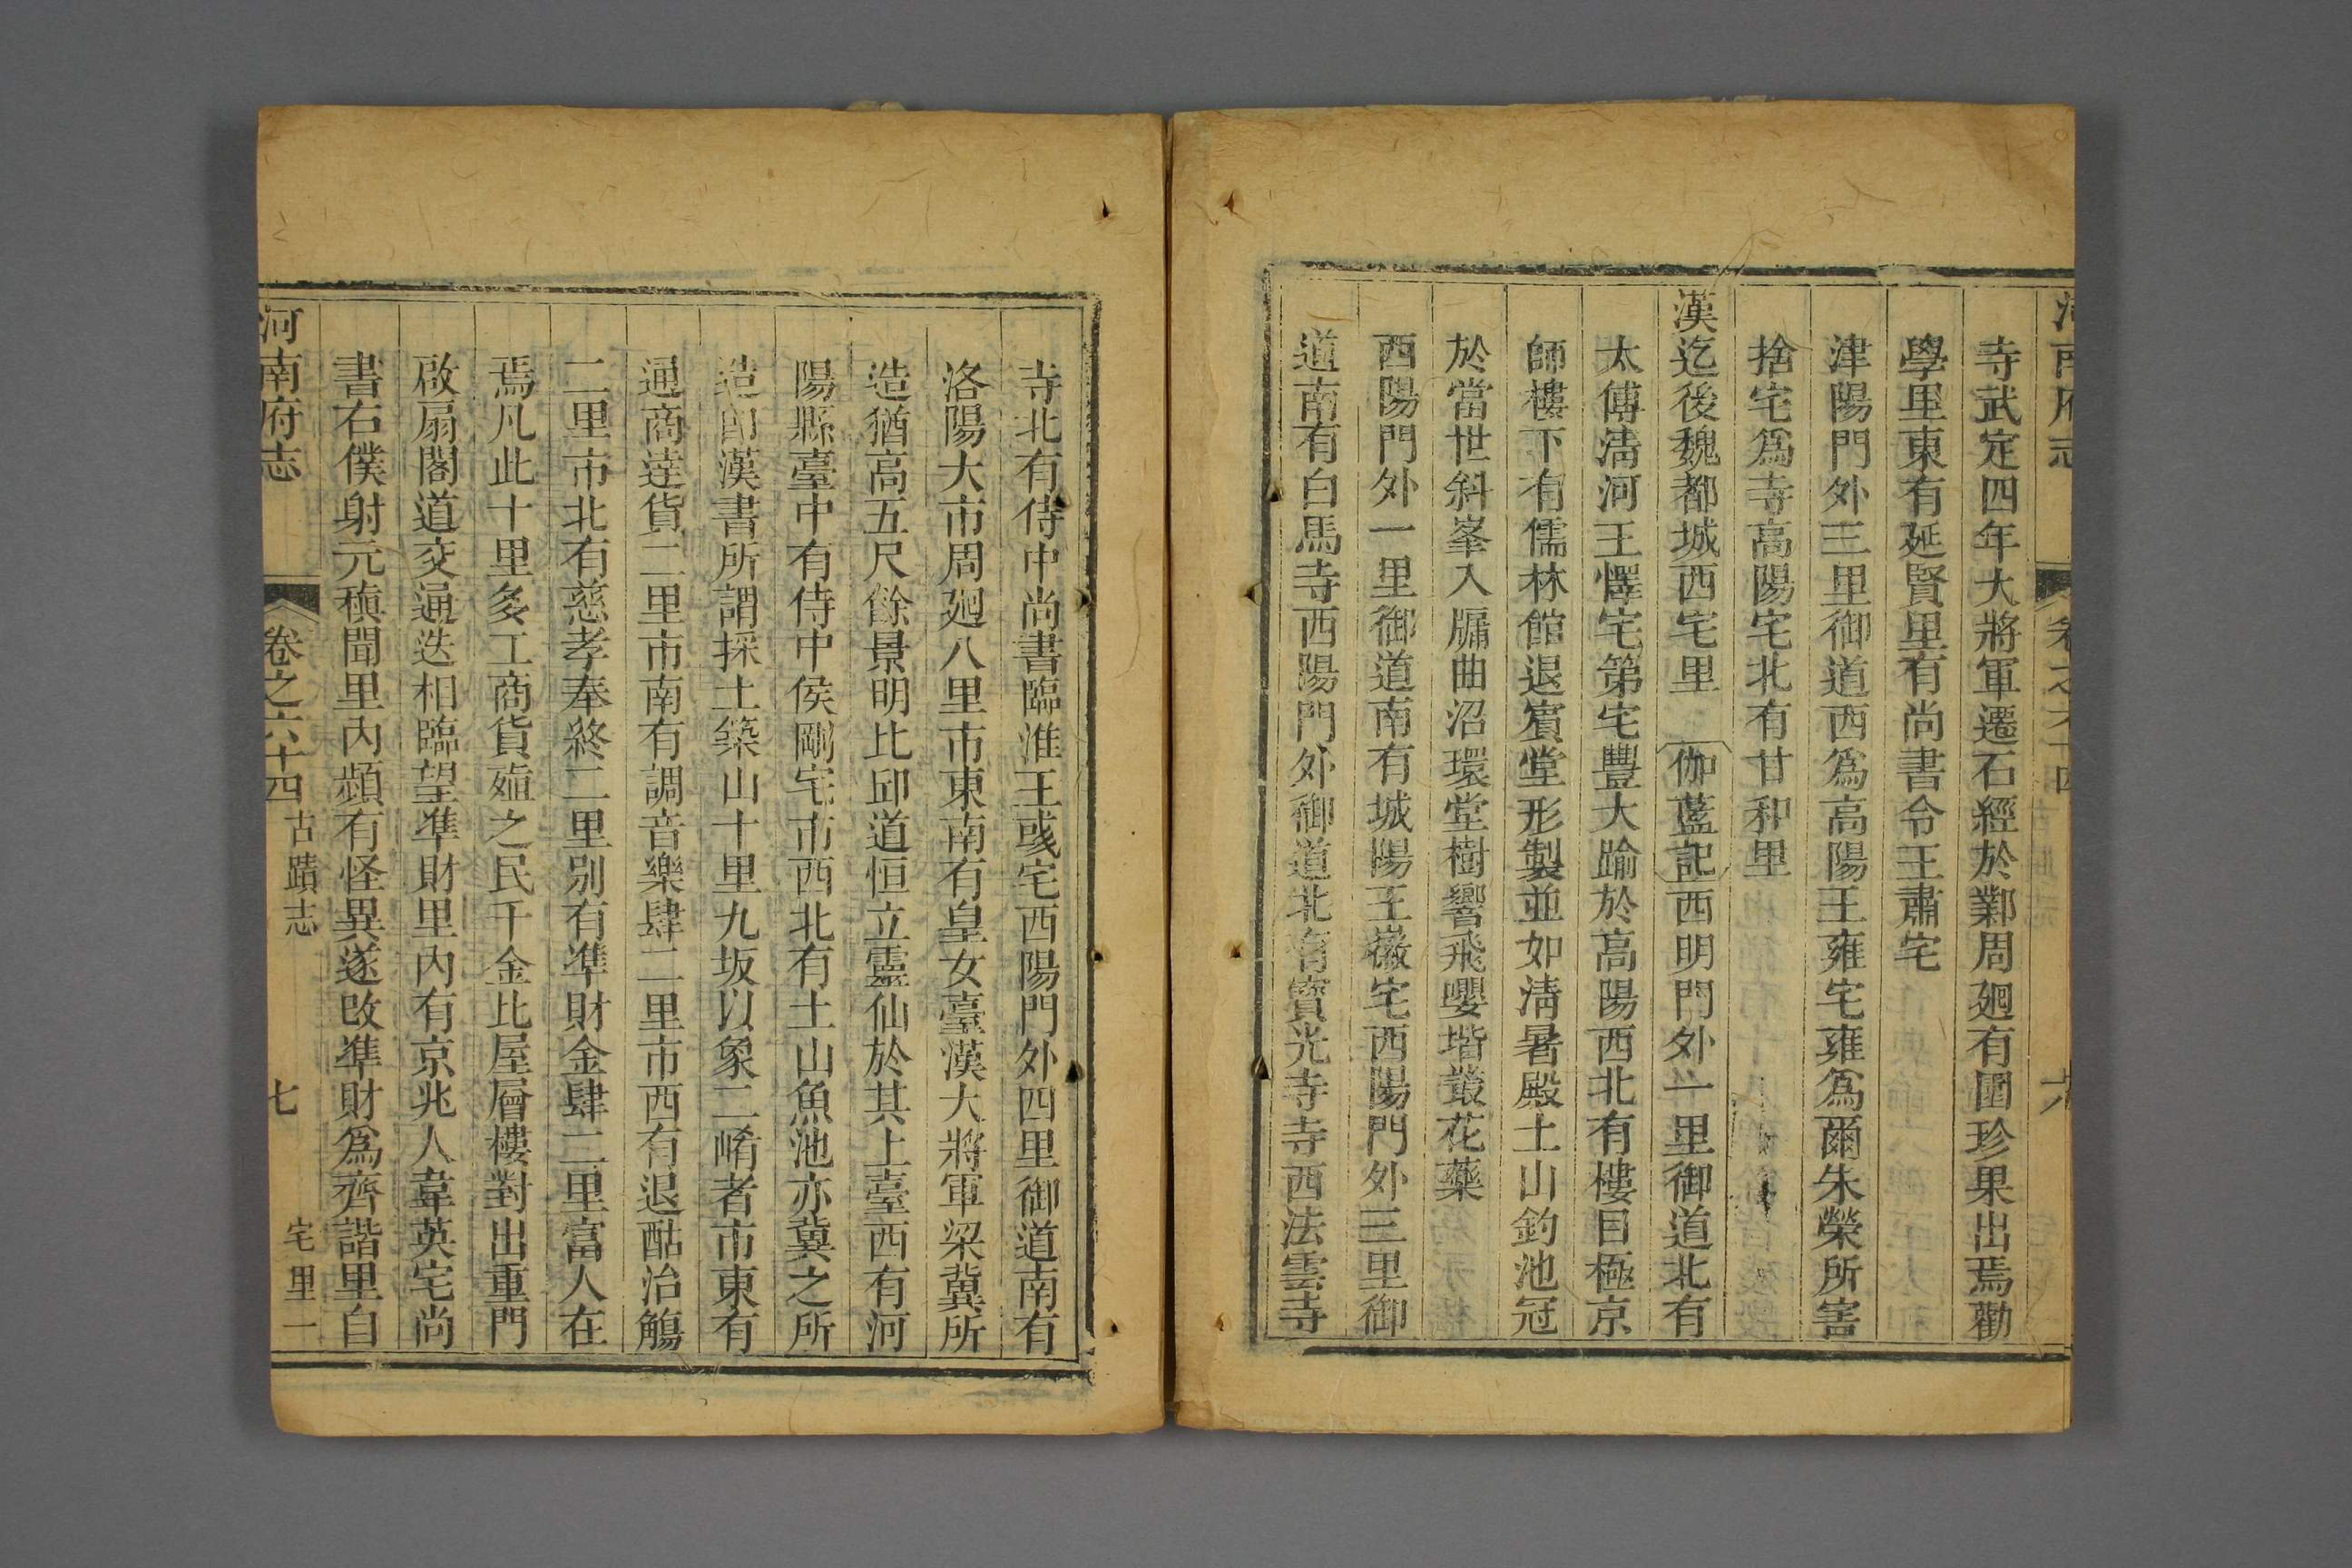 河南府志
卷之六十四
六
寺武定四年大將軍遷石經於鄴周廻有園珍果出焉勸
學里東有延賢里有尚書令王肅宅
津陽門外三里御道西爲高陽王雍宅雍爲爾朱榮所害
捨宅爲寺高陽宅北有甘和里
漢迄後魏都城西宅里 伽藍記西明門外一里御道北有
太傅淸河王懌宅第宅豐大踰於高陽西北有樓目極京
師樓下有儒林館退賓堂形製並如淸暑殿土山釣池冠
於當世斜峯入牖曲沼環堂樹響飛嚶堦叢花藥
西陽門外一里御道南有城陽王徽宅西陽門外三里御
道南有白馬寺西陽門外御道北有寶光寺寺西法雲寺
寺北有侍中尚書臨淮王彧宅西陽門外四里御道南有
洛陽大市周廻八里市東南有皇女臺漢大將軍梁冀所
造猶高五尺餘景明比邱道恒立靈仙於其上臺西有河
陽縣臺中有侍中侯剛宅市西北有土山魚池亦冀之所
造卽漢書所謂採土築山十里九坂以象二崤者市東有
通商達貨二里市南有調音樂肆二里市西有退酤治觴
二里市北有慈孝奉終二里別有準財金肆二里富人在
焉凡此十里多工商貨殖之民千金比屋層樓對出重門
啟扇閣道交通迭相臨望準財里內有京兆人韋英宅尚
書右僕射元稹聞里內頻有怪異遂改準財爲齊諧里自
河南府志
卷之六十四 古蹟志
七
宅里一